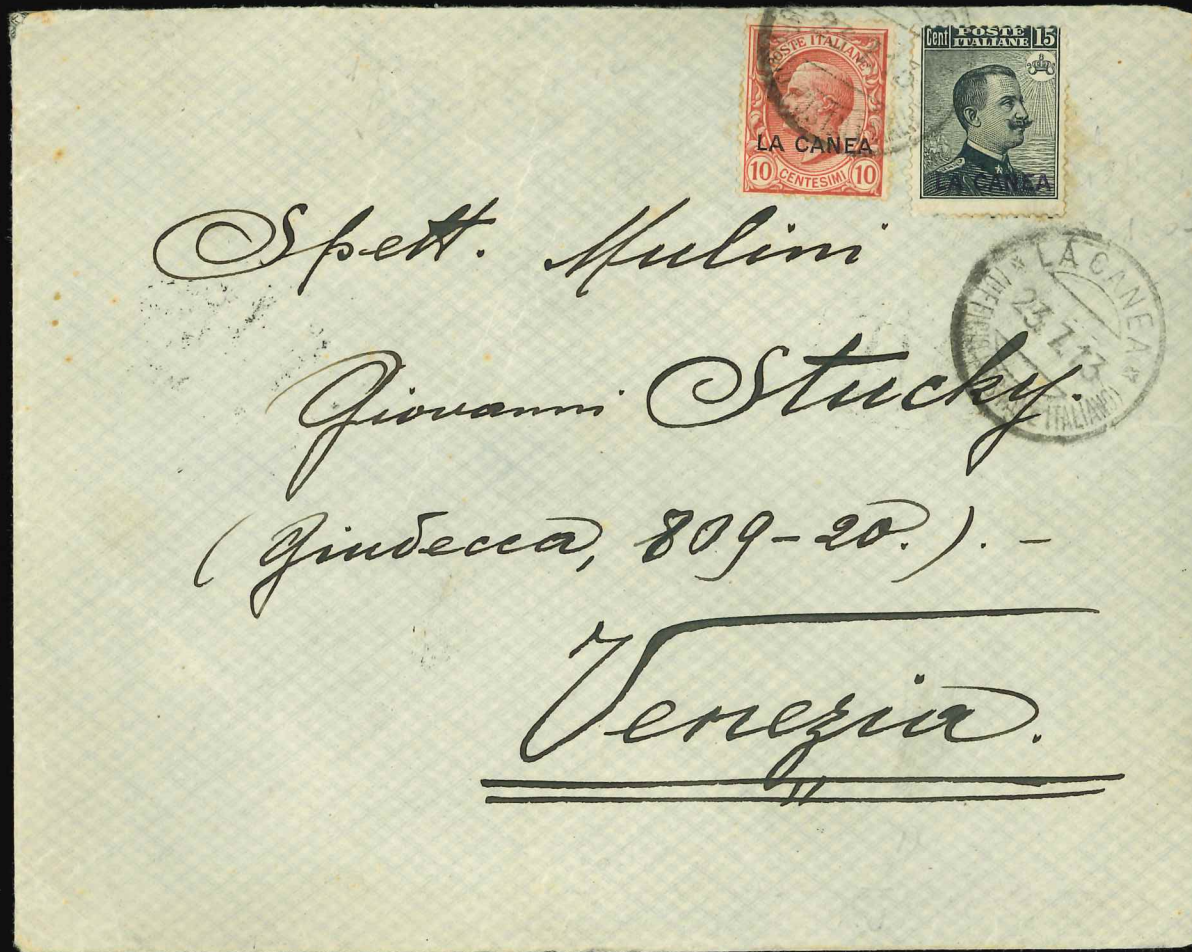 POSTE ITALIANE
LA CANEA
10 CENTESIMI 10
Cent POSTE ITALIANE 15
LA CANEA
LA CANEA
23.7.13
ITALIANO)
Spett. Mulini
Giovanni Stucky.
(Giudecca, 809-20.). -
Venezia.